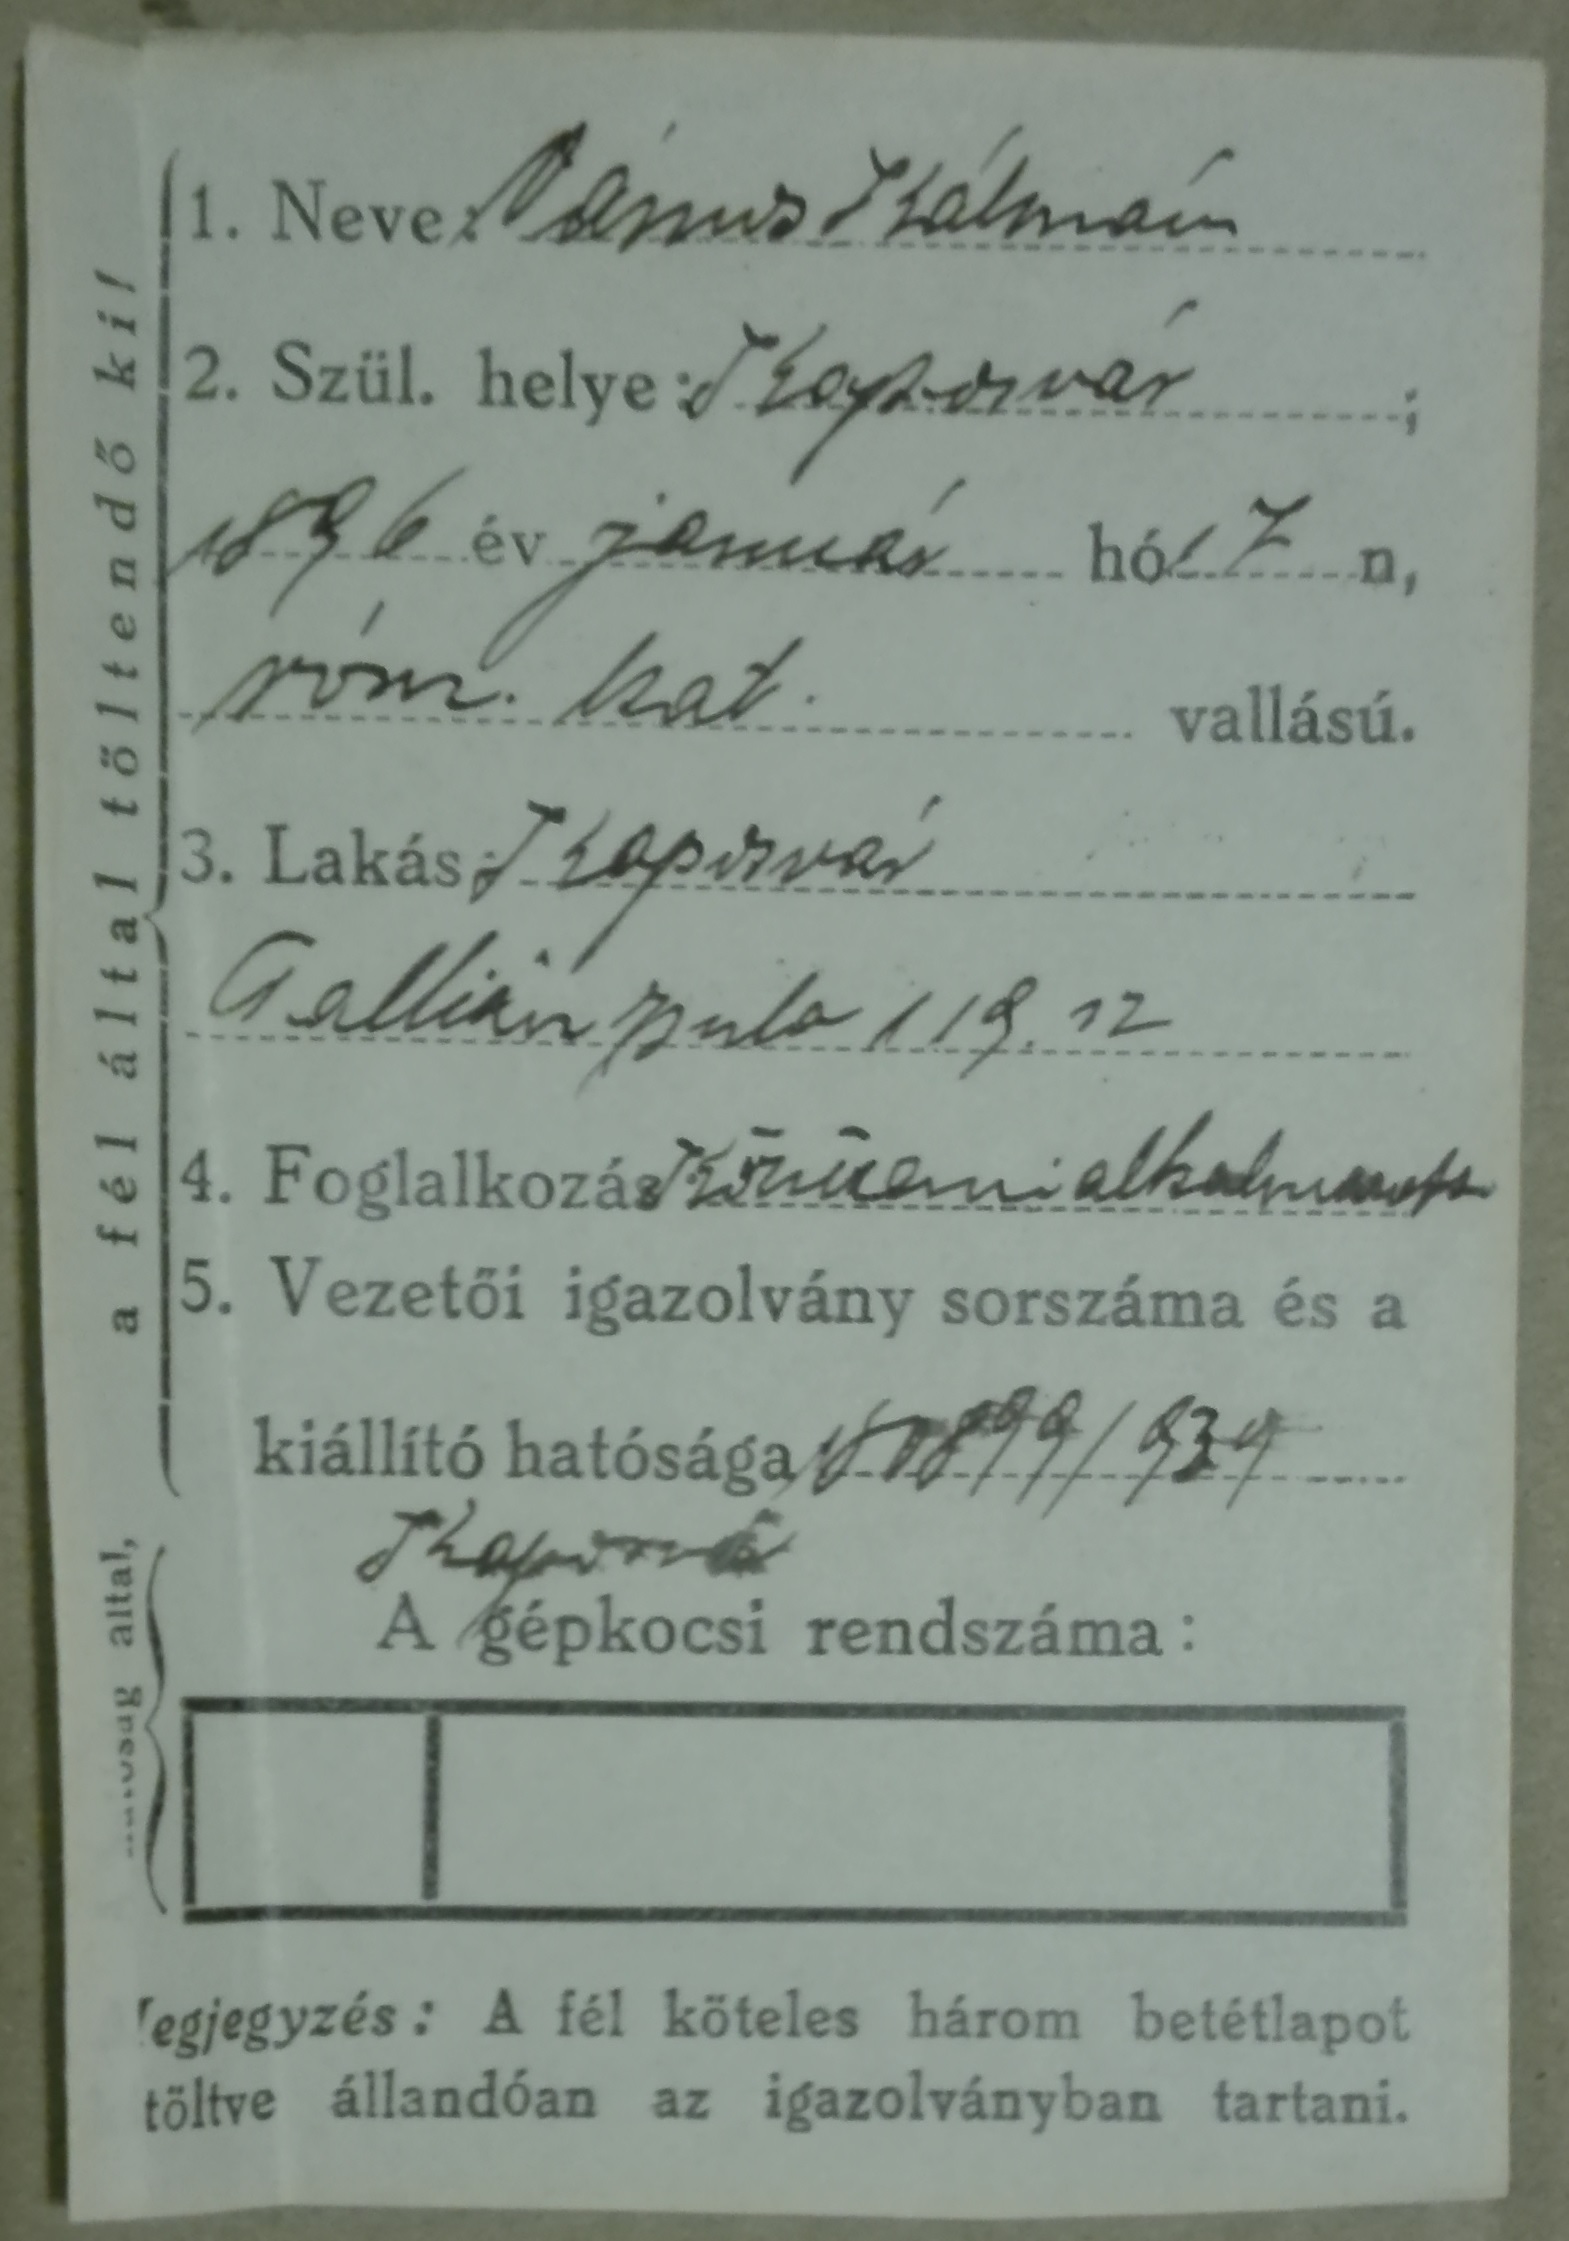 a fél által töltendő ki!
1. Neve: Vámus Kálmán
2. Szül. helye: Kaposvár ;
1896 év január hó 17 n,
róm. kat. vallású.
3. Lakás: Kaposvár
Gallián gyula 119. 12
4. Foglalkozás: Közüzemi alkalmazott
5. Vezetői igazolvány sorszáma és a
kiállító hatósága 899/939
Kaposvár
hatóság által,
A gépkocsi rendszáma:
egjegyzés: A fél köteles három betétlapot
töltve állandóan az igazolványban tartani.